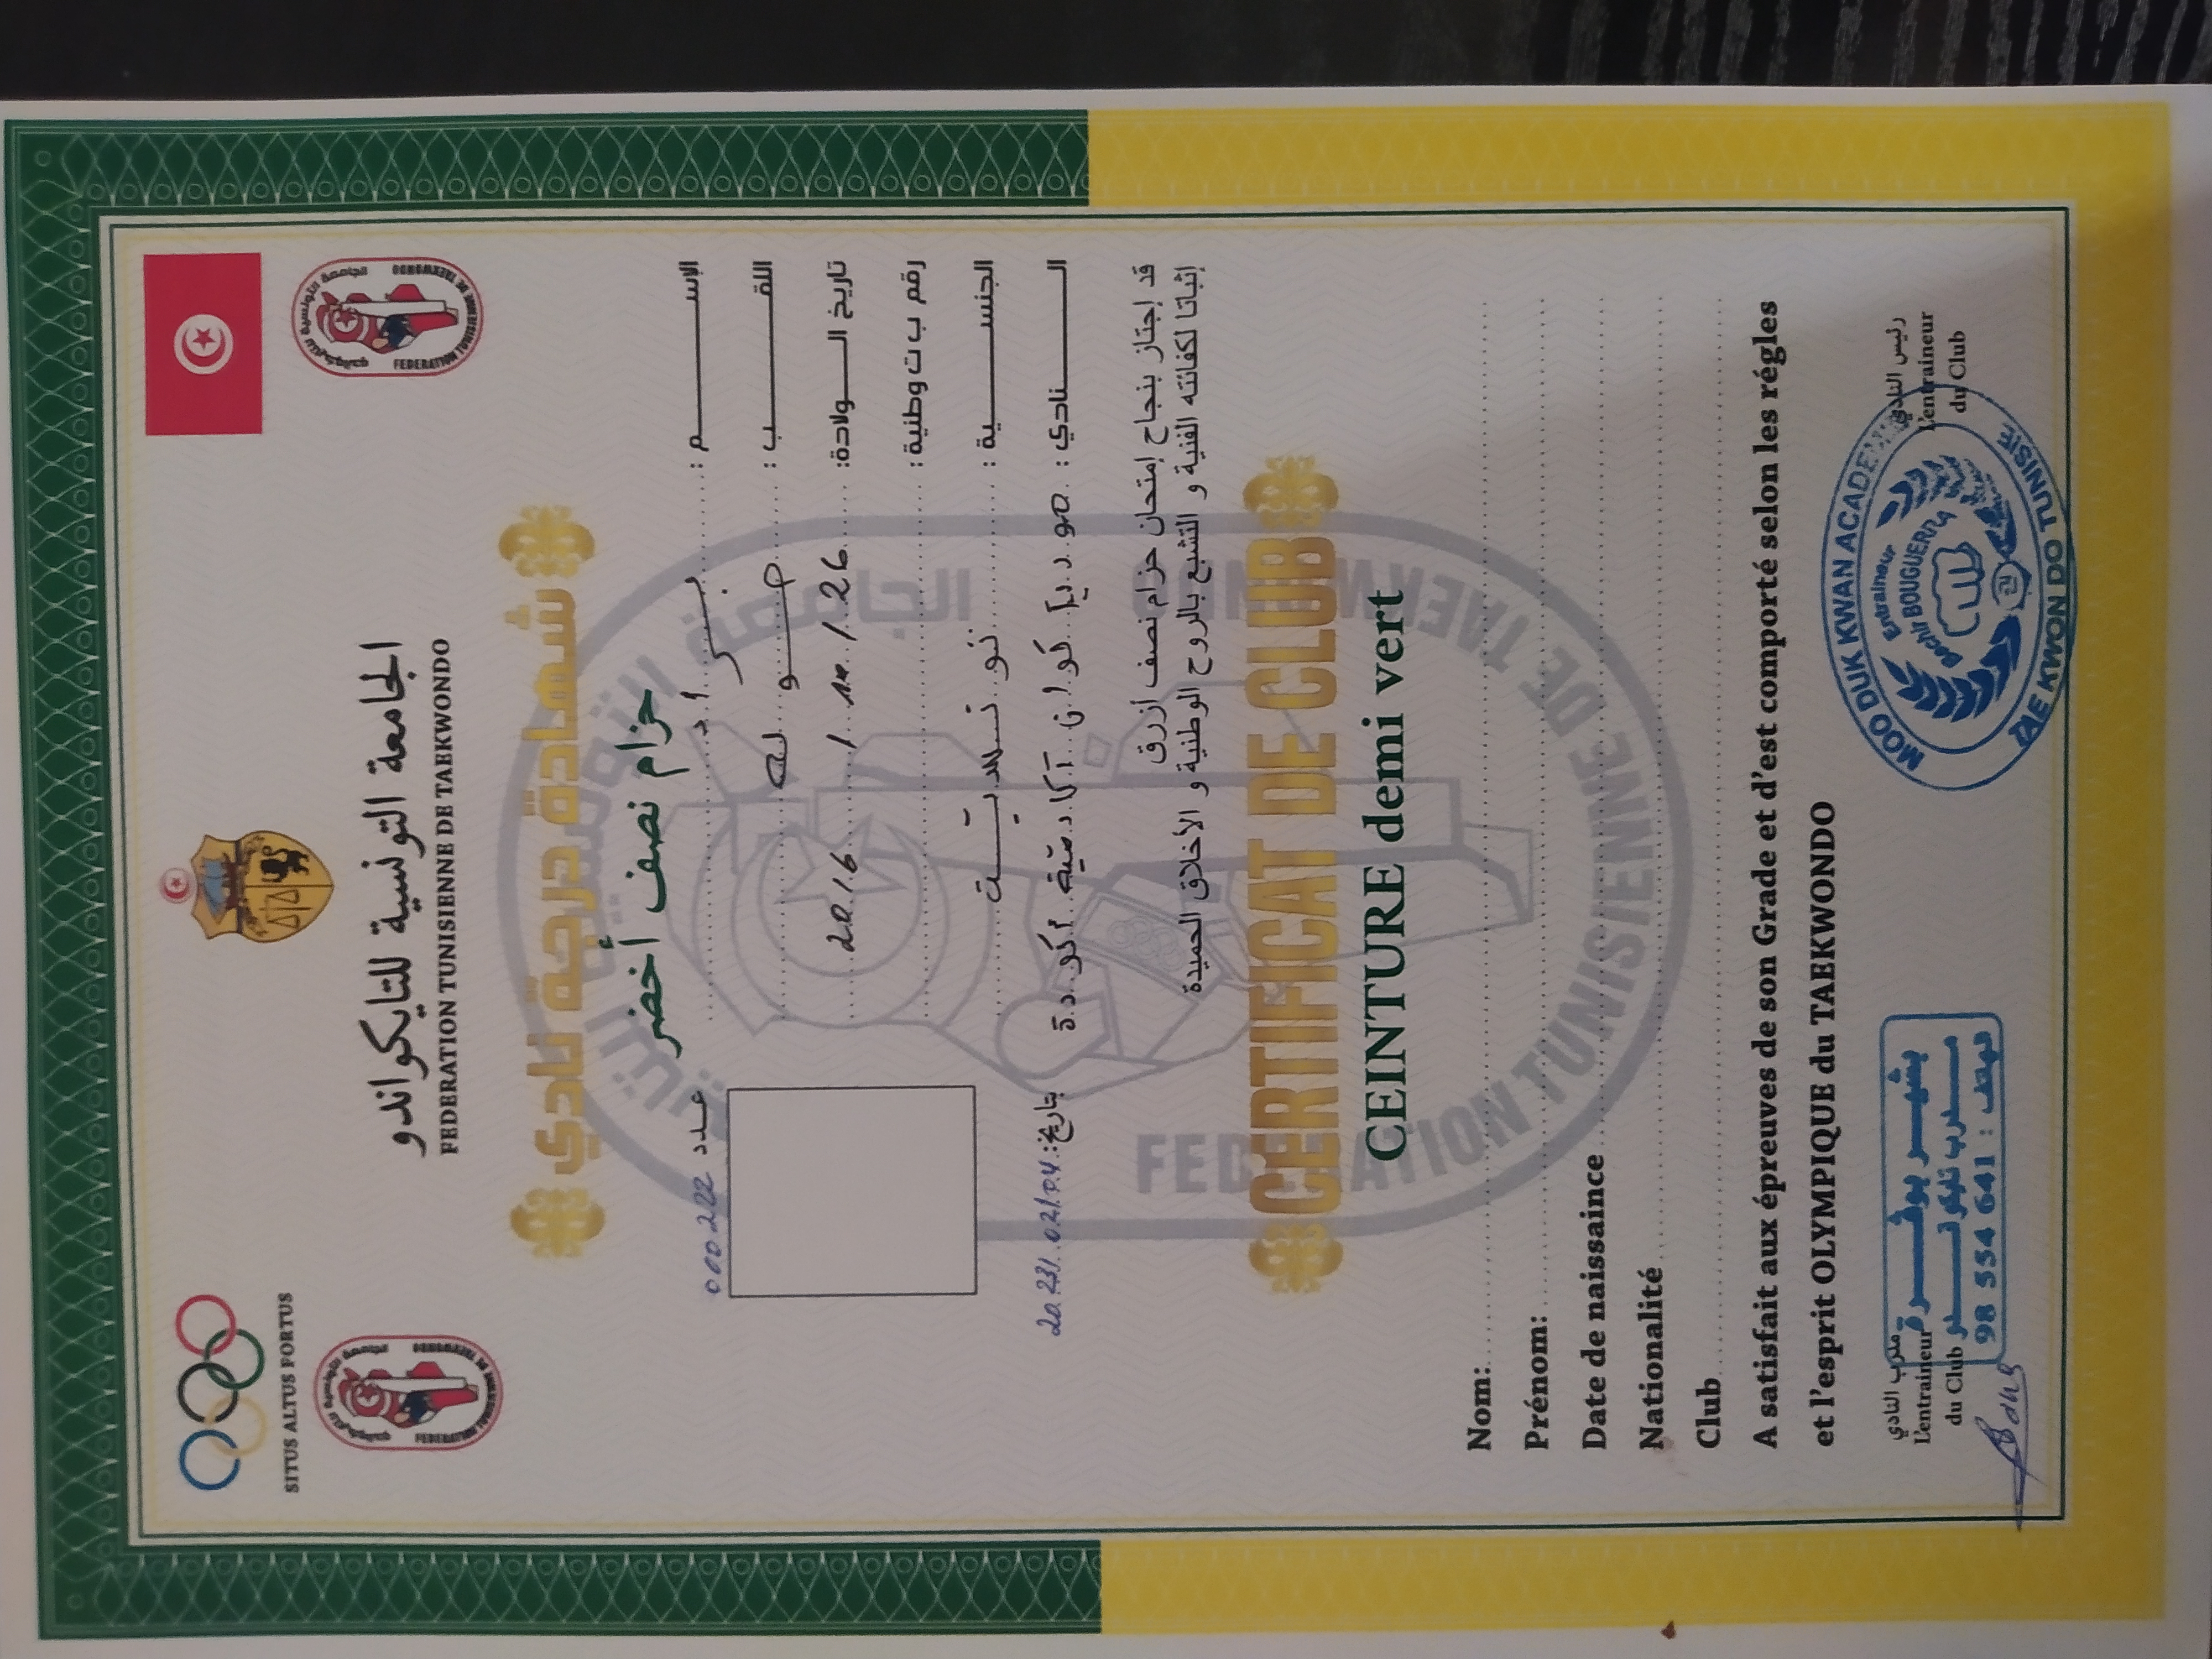 SITUS ALTUS FORTUS
الجامعة التونسية للتايكواندو
FEDERATION TUNISIENNE DE TAEKWONDO
شهادة درجة نادي
حزام نصف أخضر
عدد 000222
الإسم :
اللقب : صولة
تاريخ الولادة: 26 / 10 / 2016
رقم ب ت وطنية :
الجنسية : تونسية
النادي : مو ديك كوان آكادمية أكودة
بتاريخ: 2023/02/04
قد إجتاز بنجاح إمتحان حزام نصف أزرق
إثباتا لكفائته الفنية و التشبع بالروح الوطنية و الأخلاق الحميدة
CERTIFICAT DE CLUB
CEINTURE demi vert
Nom:
Prénom:
Date de naissaince
Nationalité
Club
A satisfait aux épreuves de son Grade et d'est comporté selon les régles
et l'esprit OLYMPIQUE du TAEKWONDO
مدرب النادي
L'entraineur
du Club
بشير بوڨرة
مدرب تايكواندو
98 554 641 :
رئيس النادي
L'entraineur
du Club
MOO DUK KWAN ACADEMY
Entraineur
Bechir BOUGUERRA
TAE KWON DO TUNISIE
الجامعة التونسية
FEDERATION TUNISIENNE DE TAEKWONDO